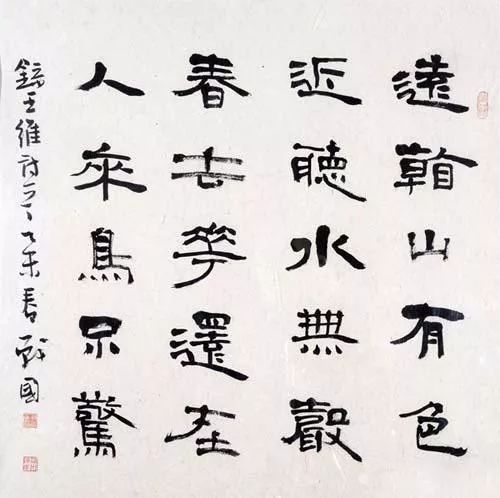 遠看山有色
近聽水無聲
春去花還在
人來鳥不驚
錄王維詩一首乙未春國